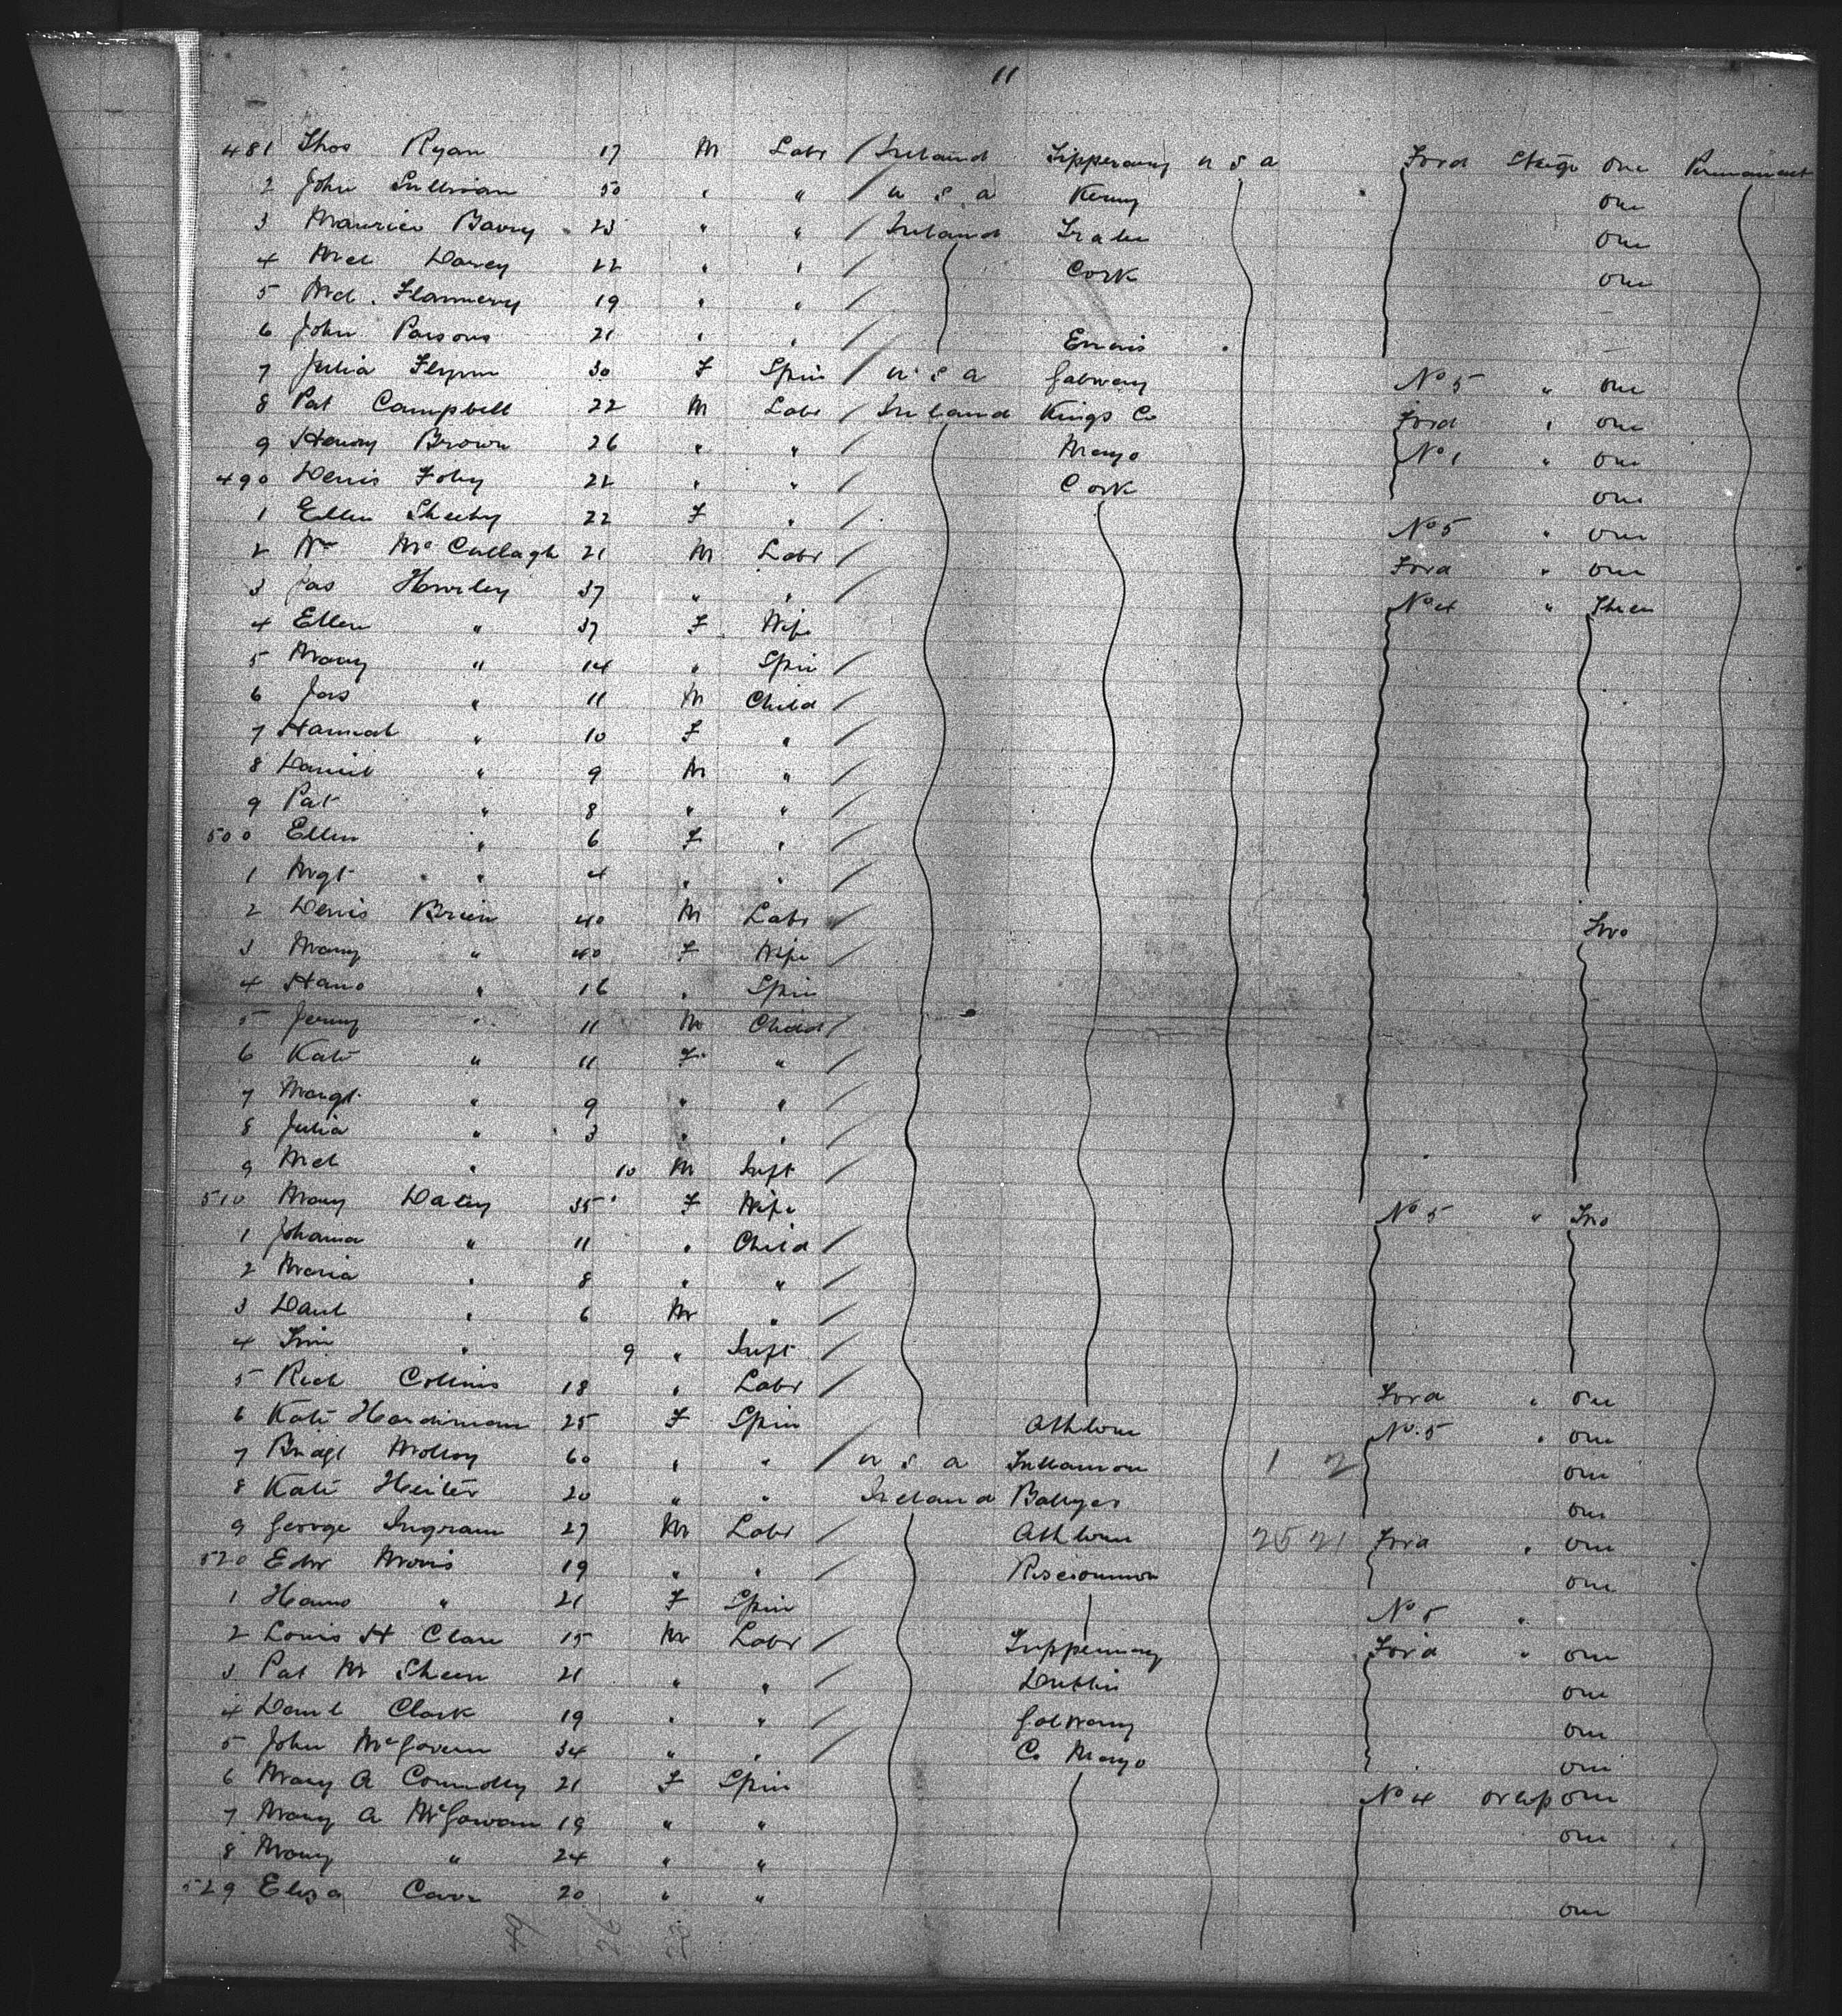 11
481 Thos Ryan 17 M Labr / Ireland Tipperary U S A Ford Steige One Permanent
2 John Sullivan 50 " " / U S A Kerry One
3 Maurice Barry 23 " " / Ireland Tralee One
4 Mch Darcy 22 " " / Cork One
5 Mch. Flannery 19 " " /
6 John Parsons 21 " " / Ennis —
7 Julia Flynn 30 F Spin / U S A Galway No 5 " One
8 Pat Campbell 22 M Labr / Ireland Kings Co Ford " One
9 Henry Brown 26 " " / Mayo No 1 " One
490 Denis Foley 22 " " / Cork One
1 Ellen Sheehy 22 F " / No 5 " One
2 Wm McCullagh 21 M Labr / Ford " One
3 Jas Howley 37 " " / No 4 " Three
4 Ellen " 37 F Wife
5 Mary " 14 " Spin /
6 Jas " 11 M Child /
7 Hannah " 10 F " /
8 Daniel " 9 M " /
9 Pat " 8 " " /
500 Ellen " 6 F " /
1 Mgt " 4 " " /
2 Denis Brien 40 M Labr / Two
3 Mary " 40 F Wife /
4 Hano " 16 " Spin
5 Jerry " 11 M Child /
6 Kate " 11 F " /
7 Margt " 9 " " /
8 Julia " 3 " " /
9 Mch " 10 M Inft /
510 Mary Daley 35 F Wife No 5 " Two
1 Johanna " 11 " Child /
2 Maria " 8 " " /
3 Danl " 6 M " /
4 Tim " 9 " Inft /
5 Rich Collins 18 " Labr / Ford " One
6 Kate Hardiman 25 F Spin Athlone No. 5 " One
7 Bridgt Molloy 60 " " / U S A Tullamore 1 2 One
8 Kate 20 " " Ireland One
9 George Ingram 27 M Labr / Athlone 25 21 Ford " One
520 Edw Morris 19 " " / Roscommon One
1 Hano " 21 F Spin No 5 "
2 Louis H Clare 15 M Labr / Tipperary Ford " One
3 Pat M Sheen 21 " " / Dublin One
4 Danl Clark 19 " " / Galway One
5 John McGovern 34 " " / Co Mayo One
6 Mary A Connolly 21 F Spin No 4 One
7 Mary A McGowan 19 " " One
8 Mary " 24 " "
529 Eliza Carr 20 " " One